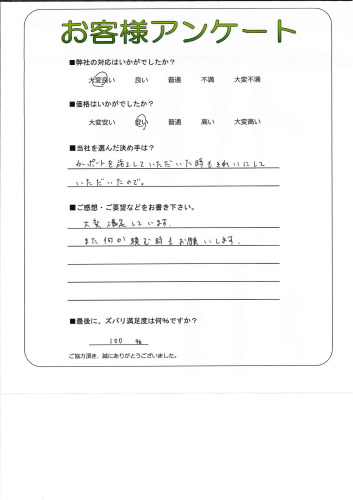 お客様アンケート
■弊社の対応はいかがでしたか？
大変良い 良い 普通 不満 大変不満
■価格はいかがでしたか？
大変安い 安い 普通 高い 大変高い
■当社を選んだ決め手は？
カーポートを していただいた時もきれいにして
いただいたので。
■ご感想・ご要望などをお書き下さい。
大変満足しています。
また何か頼む時もお願いします。
■最後に、ズバリ満足度は何％ですか？
100 %
ご協力頂き、誠にありがとうございました。